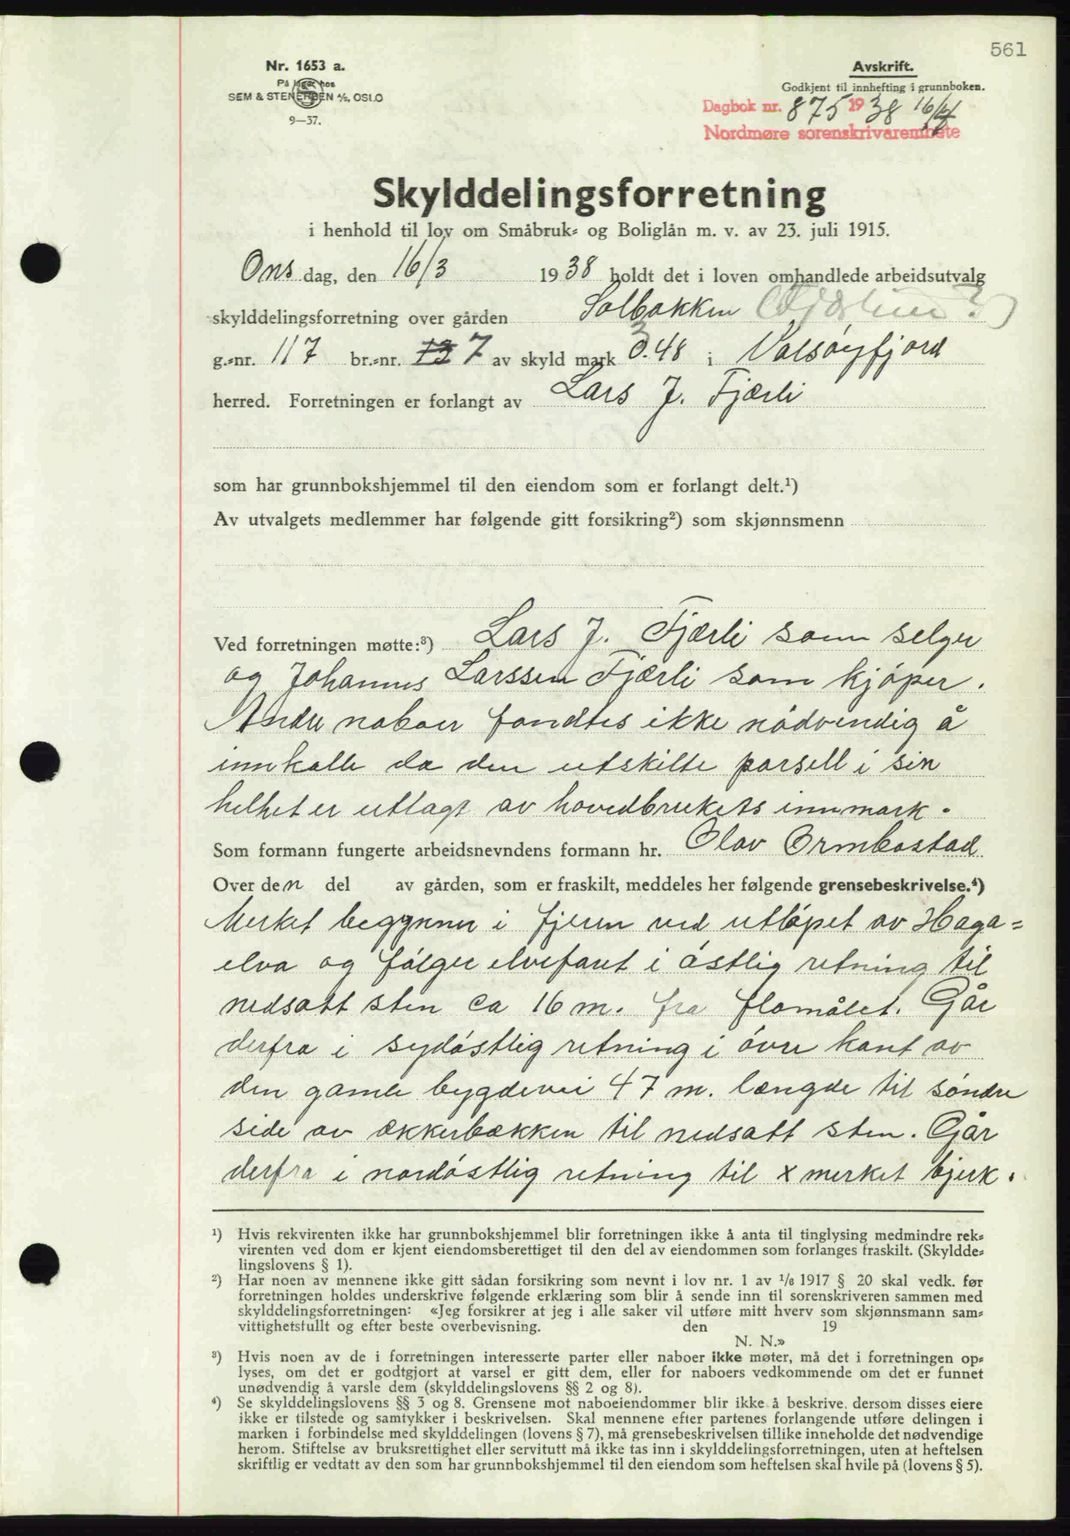 561
Nr. 1653 a.
På lager hos
SEM & STENERSEN A/S, OSLO
9—37.
Avskrift.
Godkjent til innhefting i grunnboken.
Dagbok nr. 875 1938 16/4
Nordmøre sorenskriverembete
Skylddelingsforretning
i henhold til lov om Småbruk- og Boliglån m. v. av 23. juli 1915.
Ons dag, den 16/3 1938 holdt det i loven omhandlede arbeidsutvalg
skylddelingsforretning over gården Solbakken
g.-nr. 117 br.-nr. 7 av skyld mark 3.48 i Valsøyfjord
herred. Forretningen er forlangt av Lars J. Fjærli
som har grunnbokshjemmel til den eiendom som er forlangt delt.¹)
Av utvalgets medlemmer har følgende gitt forsikring²) som skjønnsmenn
Ved forretningen møtte:³) Lars J. Fjærli som selger
og Johannes Larssen Fjærli som kjöper.
Andre naboer fandtes ikke nödvendig å
innkalle da den utskilte parsell i sin
helhet er utlagt av hovedbrukets innmark.
Som formann fungerte arbeidsnevndens formann hr. Olav Ormbostad
Over den del av gården, som er fraskilt, meddeles her følgende grensebeskrivelse.⁴)
Merket begynner i fjæren ved utlöpet av Haga=
elva og fölger elvefaret i östlig retning til
nedsatt sten ca 16 m. fra flomålet. Går
derfra i sydöstlig retning i övre kant av
den gamle bygdevei 47 m. længde til söndre
side av ækkerbækken til nedsatt sten. Går
derfra i nordöstlig retning til x merket bjerk.
¹) Hvis rekvirenten ikke har grunnbokshjemmel blir forretningen ikke å anta til tinglysing medmindre rek-
virenten ved dom er kjent eiendomsberettiget til den del av eiendommen som forlanges fraskilt. (Skyldde-
lingslovens § 1).
²) Har noen av mennene ikke gitt sådan forsikring som nevnt i lov nr. 1 av 1/8 1917 § 20 skal vedk. før
forretningen holdes underskrive følgende erklæring som blir å sende inn til sorenskriveren sammen med
skylddelingsforretningen: «Jeg forsikrer at jeg i alle saker vil utføre mitt hverv som skjønnsmann sam-
vittighetsfullt og efter beste overbevisning. den 19
N. N.»
³) Hvis noen av de i forretningen interesserte parter eller naboer ikke møter, må det i forretningen op-
lyses, om det er godtgjort at varsel er gitt dem, eller for naboers vedkommende om det er funnet
unødvendig å varsle dem (skylddelingslovens §§ 2 og 8).
⁴) Se skylddelingslovens §§ 3 og 8. Grensene mot naboeiendommer blir ikke å beskrive, dersom disses eiere
ikke er tilstede og samtykker i beskrivelsen. Skal mennene efter partenes forlangende utføre delingen i
marken i forbindelse med skylddelingen (lovens § 7), må grensebeskrivelsen tillike inneholde det nødvendige
herom. Stiftelse av bruksrettighet eller servitutt må ikke tas inn i skylddelingsforretningen, uten at heftelsen
skriftlig er vedtatt av den som har grunnbokshjemmel til den eiendom som heftelsen skal hvile på (lovens § 5).